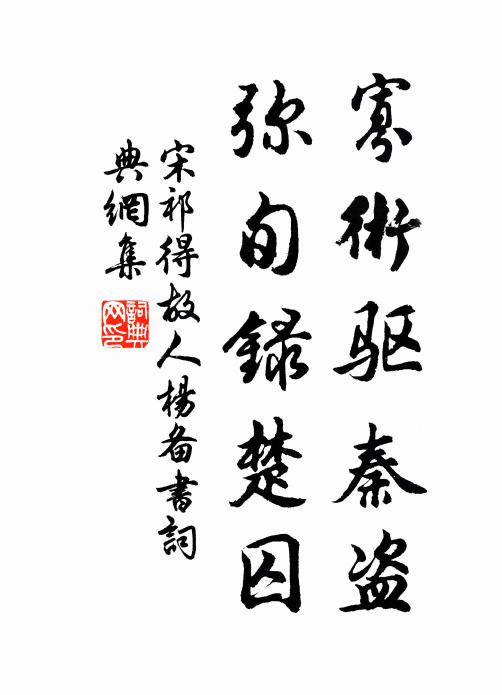 寡術驱秦盗
弥旬録楚囚
宋祁得故人楊备書詞
典網集
詞典
网印